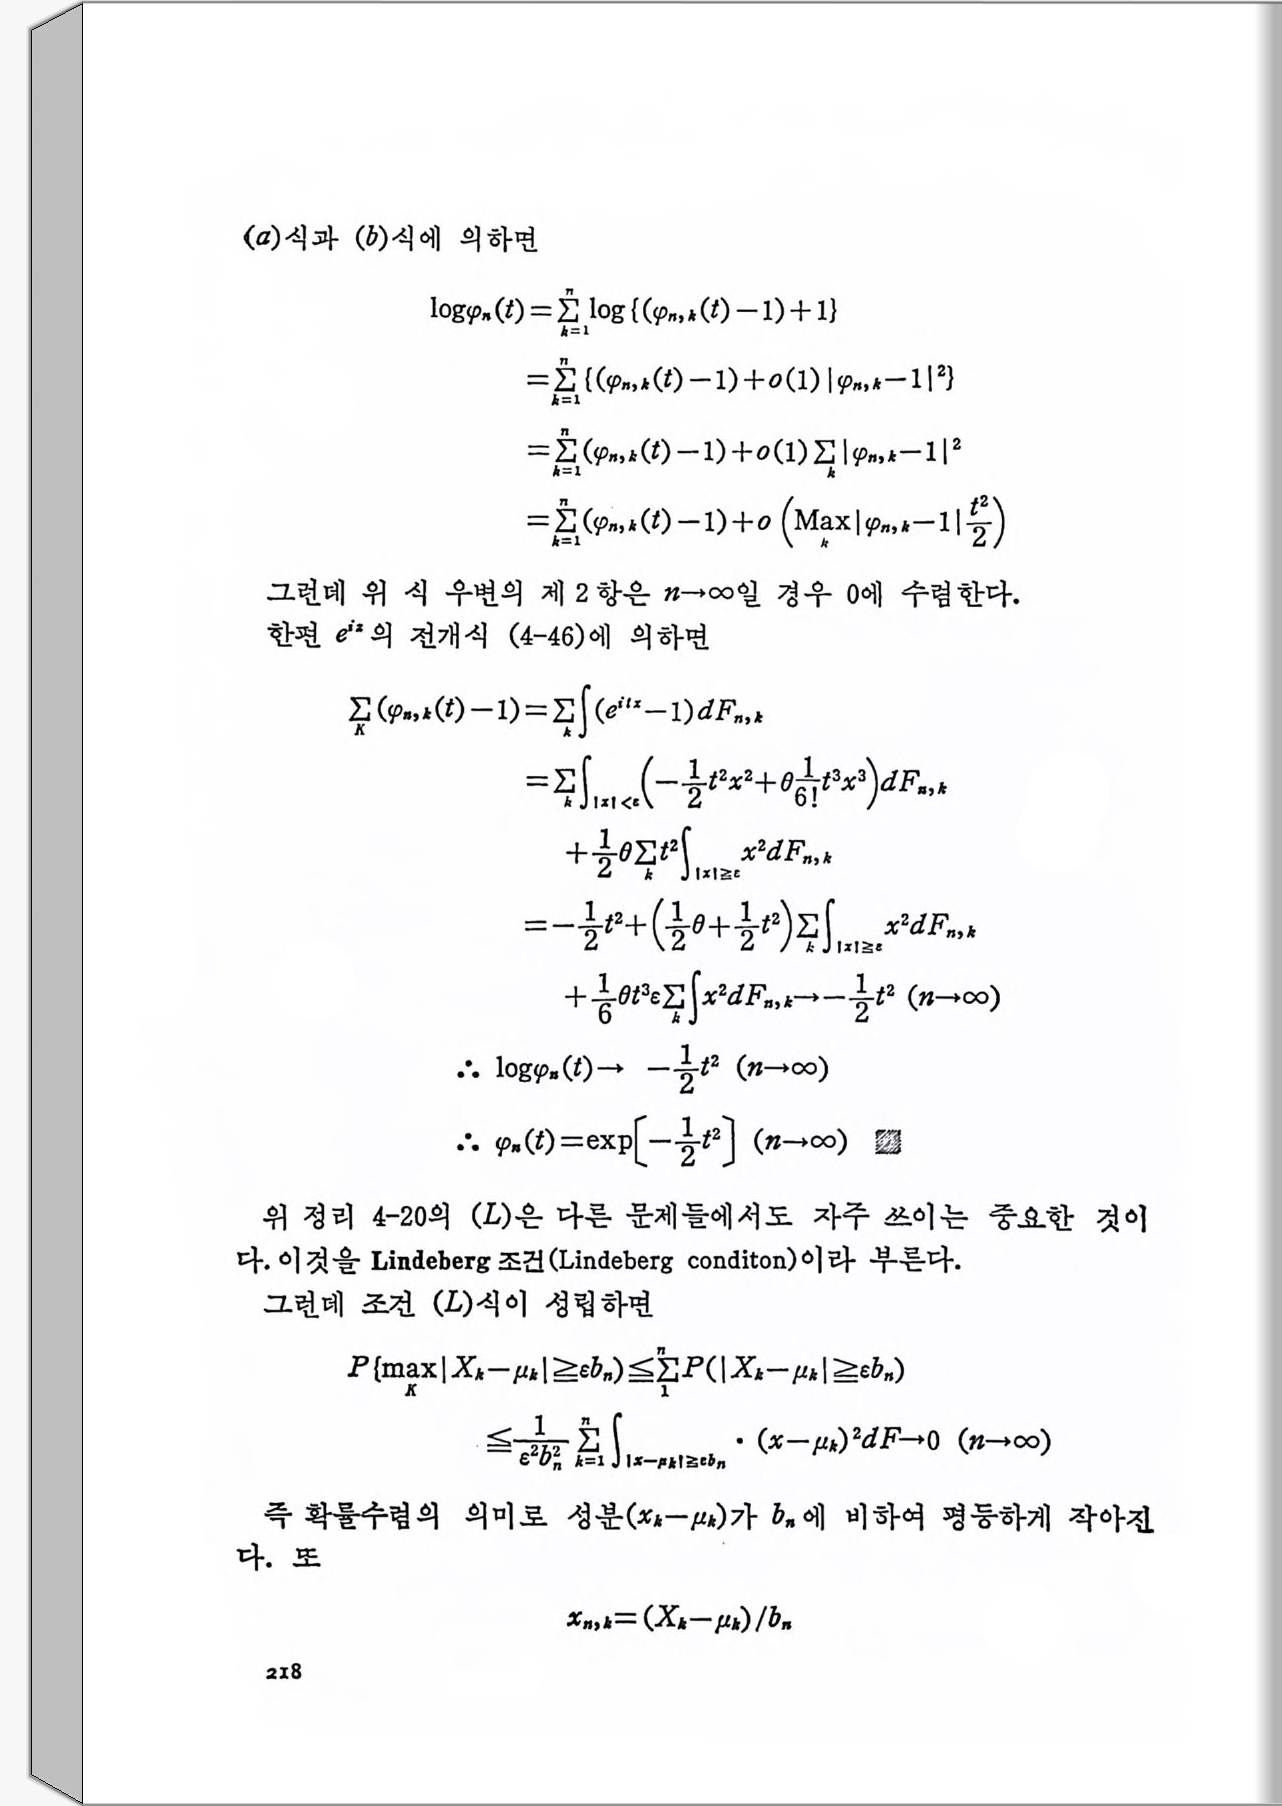 (a)식과 (b)식에 의하면
logφₙ(t)=∑_{k=1}^{n} log{(φ_{n,k}(t)−1)+1}
=∑_{k=1}^{n}{(φ_{n,k}(t)−1)+o(1)|φ_{n,k}−1|²}
=∑_{k=1}^{n}(φ_{n,k}(t)−1)+o(1)∑_{k}|φ_{n,k}−1|²
=∑_{k=1}^{n}(φ_{n,k}(t)−1)+o(Max_{k}|φ_{n,k}−1|t²/2)
그런데 위 식 우변의 제 2 항은 n→∞일 경우 0에 수렴한다.
한편 e^{iz}의 전개식 (4-46)에 의하면
∑_{K}(φ_{n,k}(t)−1)=∑_{k}∫(e^{itx}−1)dF_{n,k}
=∑_{k}∫_{|x|<ε}(−1/2 t²x²+θ 1/6! t³x³)dF_{n,k}
+1/2 θ∑_{k}t²∫_{|x|≧ε}x²dF_{n,k}
=−1/2 t²+(1/2 θ+1/2 t²)∑_{k}∫_{|x|≧ε}x²dF_{n,k}
+1/6 θt³ε∑_{k}∫x²dF_{n,k}→−1/2 t² (n→∞)
∴ logφₙ(t)→ −1/2 t² (n→∞)
∴ φₙ(t)=exp[−1/2 t²] (n→∞)
위 정리 4-20의 (L)은 다른 문제들에서도 자주 쓰이는 중요한 것이
다. 이것을 Lindeberg 조건(Lindeberg conditon)이라 부른다.
그런데 조건 (L)식이 성립하면
P{max_{K}|X_k−μ_k|≧εbₙ)≦∑_{1}^{n}P(|X_k−μ_k|≧εbₙ)
≦1/(ε²bₙ²) ∑_{k=1}^{n}∫_{|x−μk|≧εbₙ}·(x−μ_k)²dF→0 (n→∞)
즉 확률수렴의 의미로 성분(x_k−μ_k)가 bₙ에 비하여 평등하게 작아진
다. 또
x_{n,k}=(X_k−μ_k)/bₙ
218